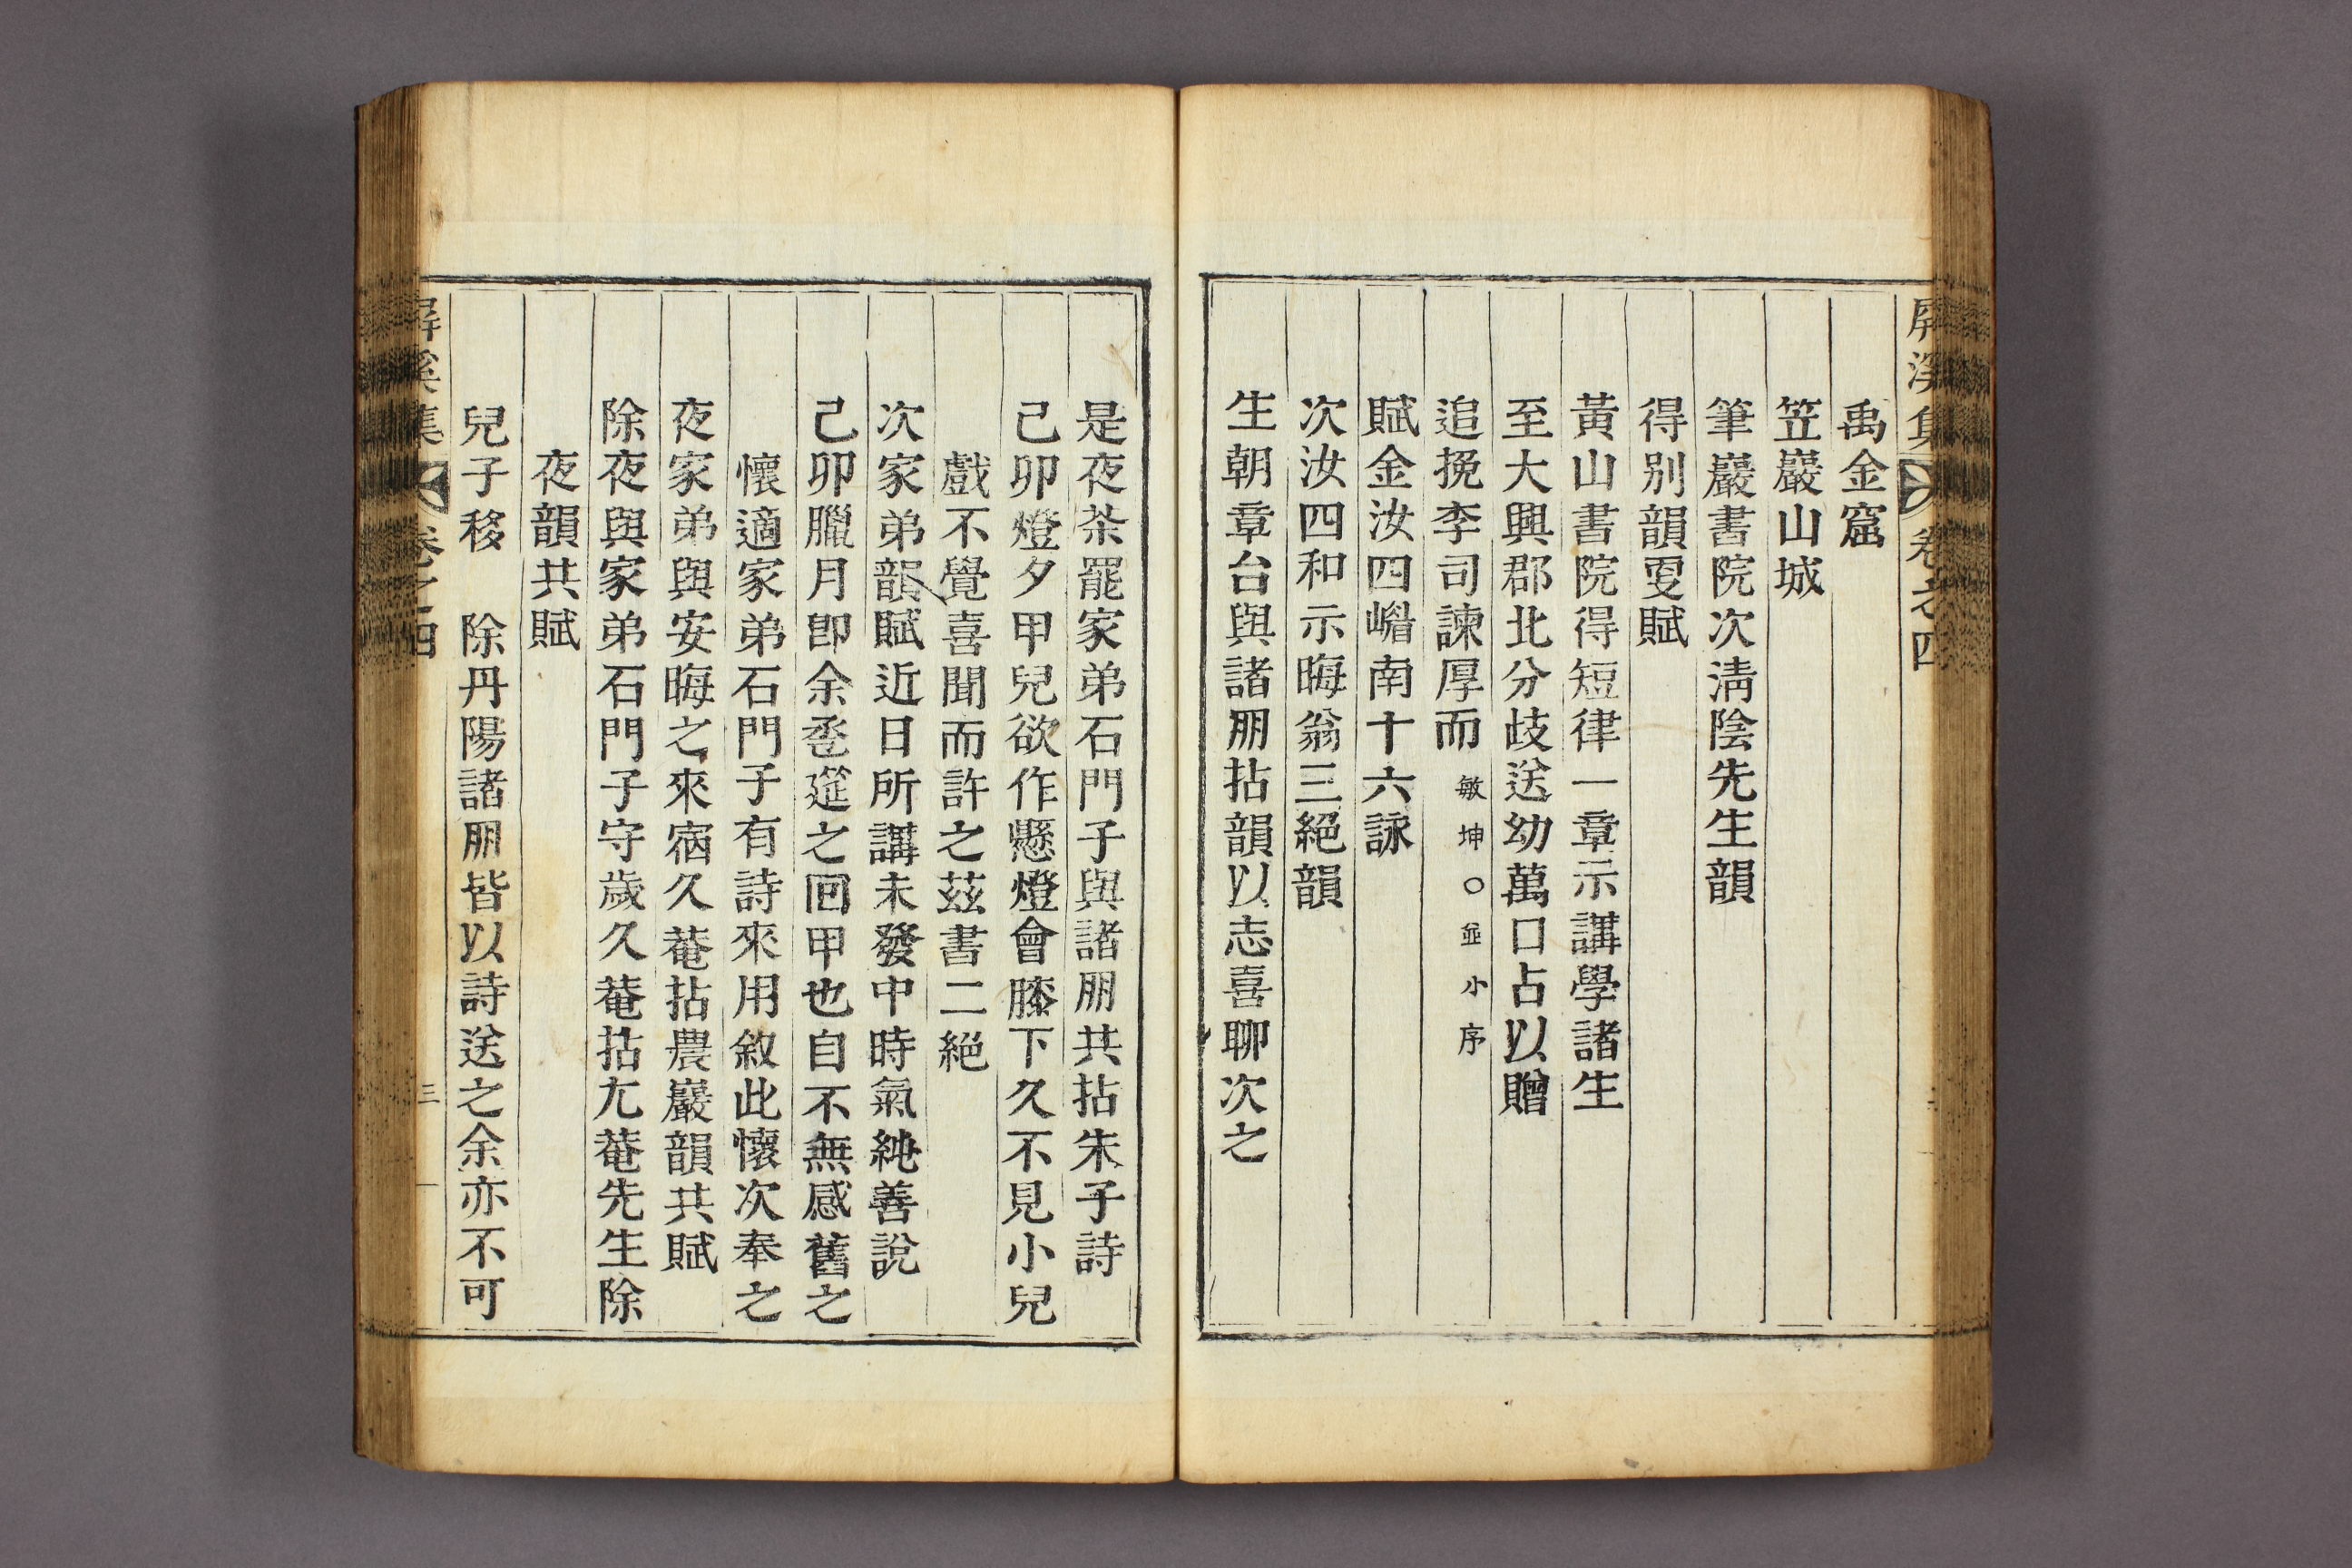 屛溪集 卷之四
禹金窟
笠巖山城
筆巖書院次淸陰先生韻
得別韻更賦
黃山書院得短律一章示講學諸生
至大興郡北分歧送幼萬口占以贈
追挽李司諫厚而 敏坤○並小序
賦金汝四嵋南十六詠
次汝四和示晦翁三絕韻
生朝章台與諸朋拈韻以志喜聊次之
是夜茶罷家弟石門子與諸朋共拈朱子詩
己卯燈夕甲兒欲作懸燈會膝下久不見小兒
戲不覺喜聞而許之茲書二絕
次家弟韻賦近日所講未發中時氣純善說
己卯臘月卽余巹筵之回甲也自不無感舊之
懷適家弟石門子有詩來用敘此懷次奉之
夜家弟與安晦之來宿久菴拈農巖韻共賦
除夜與家弟石門子守歲久菴拈尤菴先生除
夜韻共賦
兒子移 除丹陽諸朋皆以詩送之余亦不可
屛溪集 卷之四 三